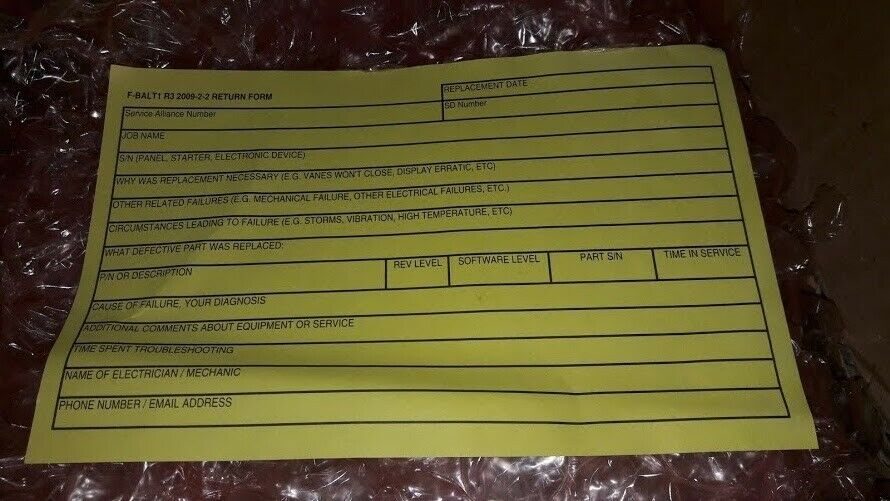 F-BALT1 R3 2009-2-2 RETURN FORM
REPLACEMENT DATE
Service Alliance Number
SD Number
JOB NAME
S/N (PANEL, STARTER, ELECTRONIC DEVICE)
WHY WAS REPLACEMENT NECESSARY (E.G. VANES WON'T CLOSE, DISPLAY ERRATIC, ETC)
OTHER RELATED FAILURES (E.G. MECHANICAL FAILURE, OTHER ELECTRICAL FAILURES, ETC.)
CIRCUMSTANCES LEADING TO FAILURE (E.G. STORMS, VIBRATION, HIGH TEMPERATURE, ETC)
WHAT DEFECTIVE PART WAS REPLACED:
P/N OR DESCRIPTION
REV LEVEL
SOFTWARE LEVEL
PART S/N
TIME IN SERVICE
CAUSE OF FAILURE, YOUR DIAGNOSIS
ADDITIONAL COMMENTS ABOUT EQUIPMENT OR SERVICE
TIME SPENT TROUBLESHOOTING
NAME OF ELECTRICIAN / MECHANIC
PHONE NUMBER / EMAIL ADDRESS